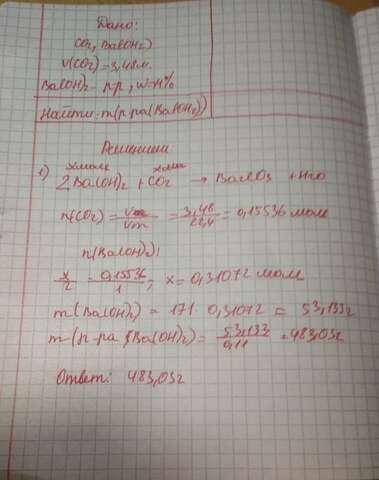 Дано:
CO2, Ba(OH)2
V(CO2)=3,48л.
Ba(OH)2 - р-р, W=11%
Найти: m(р-ра(Ba(OH)2))
Решение
1) 2Ba(OH)2 + CO2 → + H2O
n(CO2) = = 3,48/22,4 = 0,15536 моль
n(Ba(OH)2)
x/2 = 0,15536/1; x = 0,31072 моль
m(Ba(OH)2) = 171 · 0,31072 = 53,133г
m(р-ра (Ba(OH)2) = 53,133/0,11 = 483,03г
Ответ: 483,03г